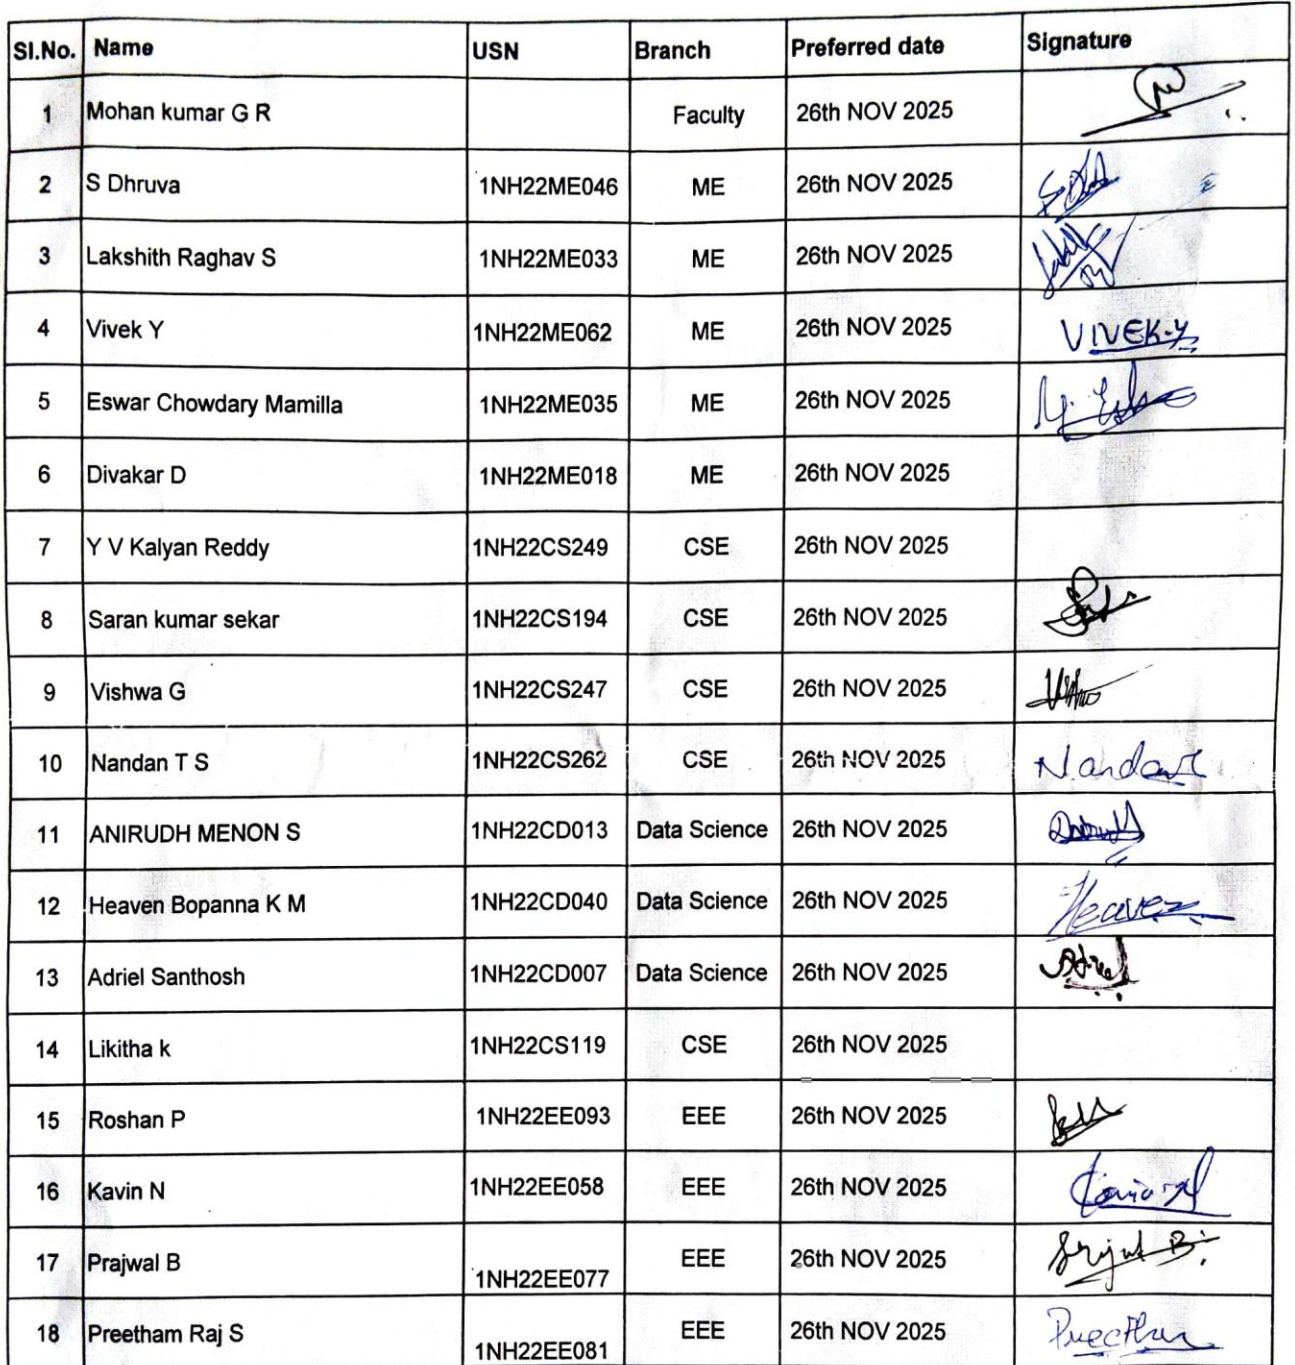 Sl.No. Name USN Branch Preferred date Signature
1 Mohan kumar G R Faculty 26th NOV 2025
2 S Dhruva 1NH22ME046 ME 26th NOV 2025
3 Lakshith Raghav S 1NH22ME033 ME 26th NOV 2025
4 Vivek Y 1NH22ME062 ME 26th NOV 2025 VIVEK-Y
5 Eswar Chowdary Mamilla 1NH22ME035 ME 26th NOV 2025
6 Divakar D 1NH22ME018 ME 26th NOV 2025
7 Y V Kalyan Reddy 1NH22CS249 CSE 26th NOV 2025
8 Saran kumar sekar 1NH22CS194 CSE 26th NOV 2025
9 Vishwa G 1NH22CS247 CSE 26th NOV 2025
10 Nandan T S 1NH22CS262 CSE 26th NOV 2025
11 ANIRUDH MENON S 1NH22CD013 Data Science 26th NOV 2025
12 Heaven Bopanna K M 1NH22CD040 Data Science 26th NOV 2025 Heaven
13 Adriel Santhosh 1NH22CD007 Data Science 26th NOV 2025
14 Likitha k 1NH22CS119 CSE 26th NOV 2025
15 Roshan P 1NH22EE093 EEE 26th NOV 2025
16 Kavin N 1NH22EE058 EEE 26th NOV 2025
17 Prajwal B 1NH22EE077 EEE 26th NOV 2025
18 Preetham Raj S 1NH22EE081 EEE 26th NOV 2025